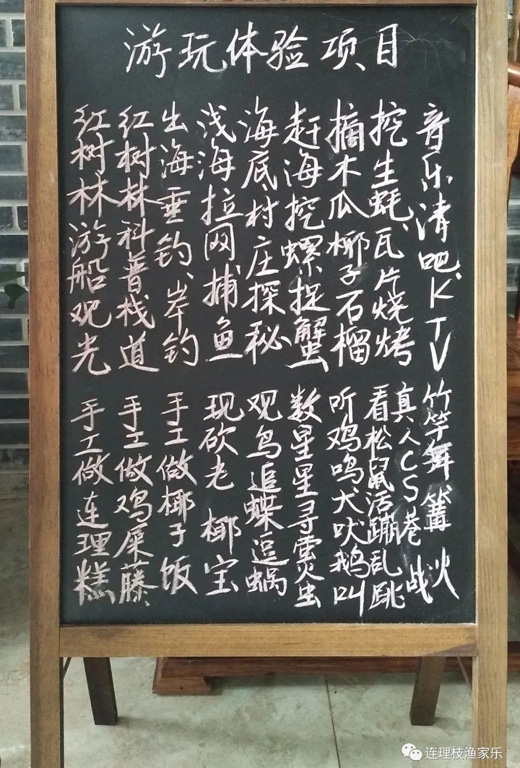 游玩体验项目
音乐清吧、KTV
挖生蚝、瓦片烧烤
摘木瓜椰子石榴
赶海挖螺捉蟹
海底村庄探秘
浅海拉网捕鱼
出海垂钓、岸钓
红树林科普栈道
红树林游船观光
竹竿舞 篝火
真人CS巷战
看松鼠活蹦乱跳
听鸡鸣犬吠鹅叫
数星星寻虫
观鸟追蝶逗蜗
现砍老椰宝
手工做椰子饭
手工做鸡屎藤
手工做连理糕
连理枝渔家乐